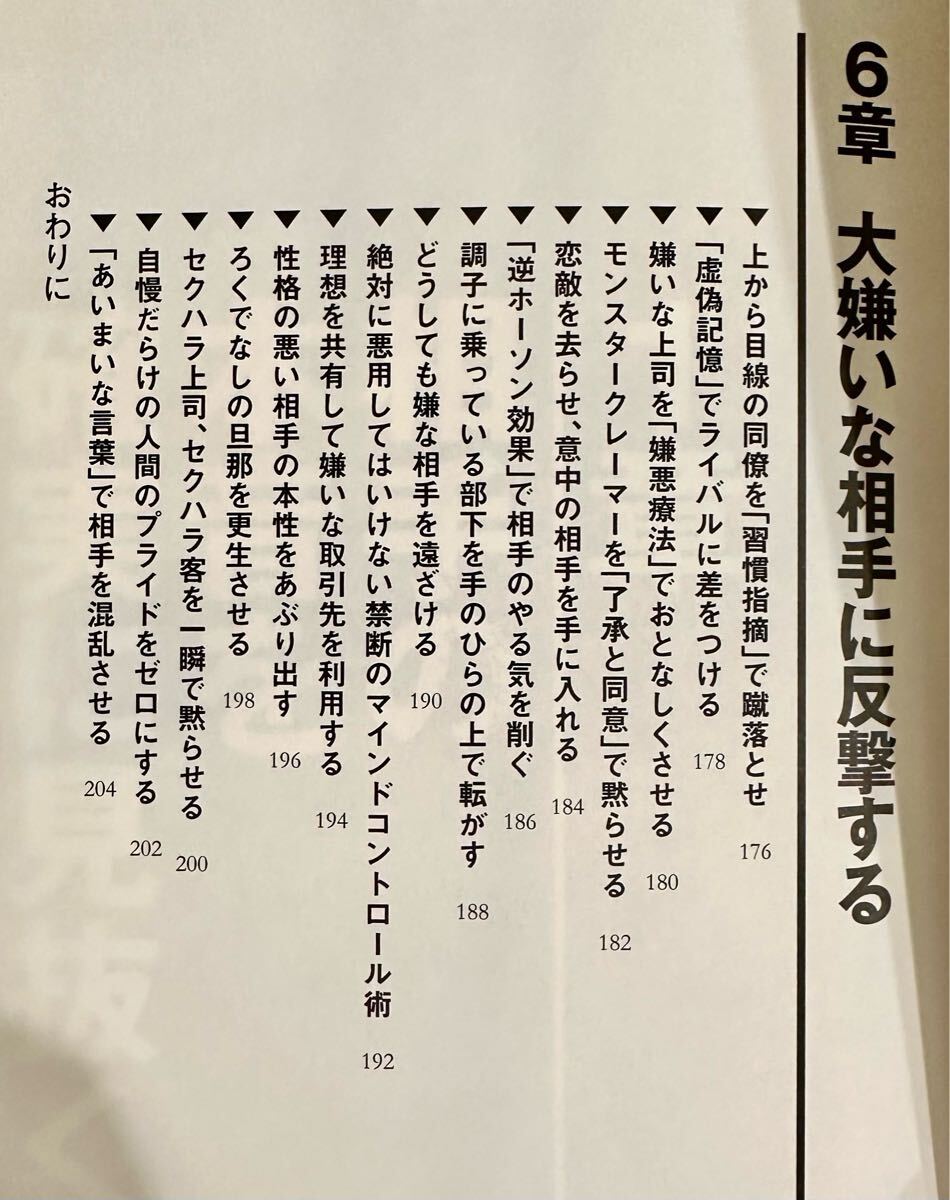 6章 大嫌いな相手に反撃する
▼上から目線の同僚を「習慣指摘」で蹴落とせ 176
▼「虚偽記憶」でライバルに差をつける 178
▼嫌いな上司を「嫌悪療法」でおとなしくさせる 180
▼モンスタークレーマーを「了承と同意」で黙らせる 182
▼恋敵を去らせ、意中の相手を手に入れる 184
▼「逆ホーソン効果」で相手のやる気を削ぐ 186
▼調子に乗っている部下を手のひらの上で転がす 188
▼どうしても嫌な相手を遠ざける 190
▼絶対に悪用してはいけない禁断のマインドコントロール術 192
▼理想を共有して嫌いな取引先を利用する 194
▼性格の悪い相手の本性をあぶり出す 196
▼ろくでなしの旦那を更生させる 198
▼セクハラ上司、セクハラ客を一瞬で黙らせる 200
▼自慢だらけの人間のプライドをゼロにする 202
▼「あいまいな言葉」で相手を混乱させる 204
おわりに